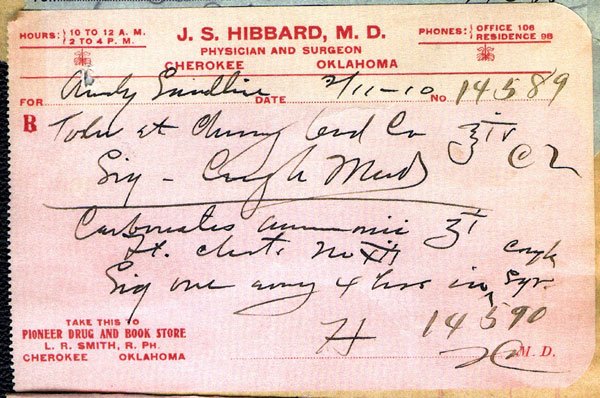 HOURS: 10 TO 12 A. M.
2 TO 4 P. M.
J. S. HIBBARD, M. D.
PHYSICIAN AND SURGEON
CHEROKEE OKLAHOMA
PHONES: OFFICE 106
RESIDENCE 98
FOR Sandline DATE 2/11-10 No. 14589
℞ Tolu et Cherry Co ʒ iv
Sig - Cough Med
Carbonates ammonii ʒ i
Ft. No XII
Sig one every 4 hrs in Cough Syr.
14590
TAKE THIS TO
PIONEER DRUG AND BOOK STORE
L. R. SMITH, R. PH.
CHEROKEE OKLAHOMA
H M. D.